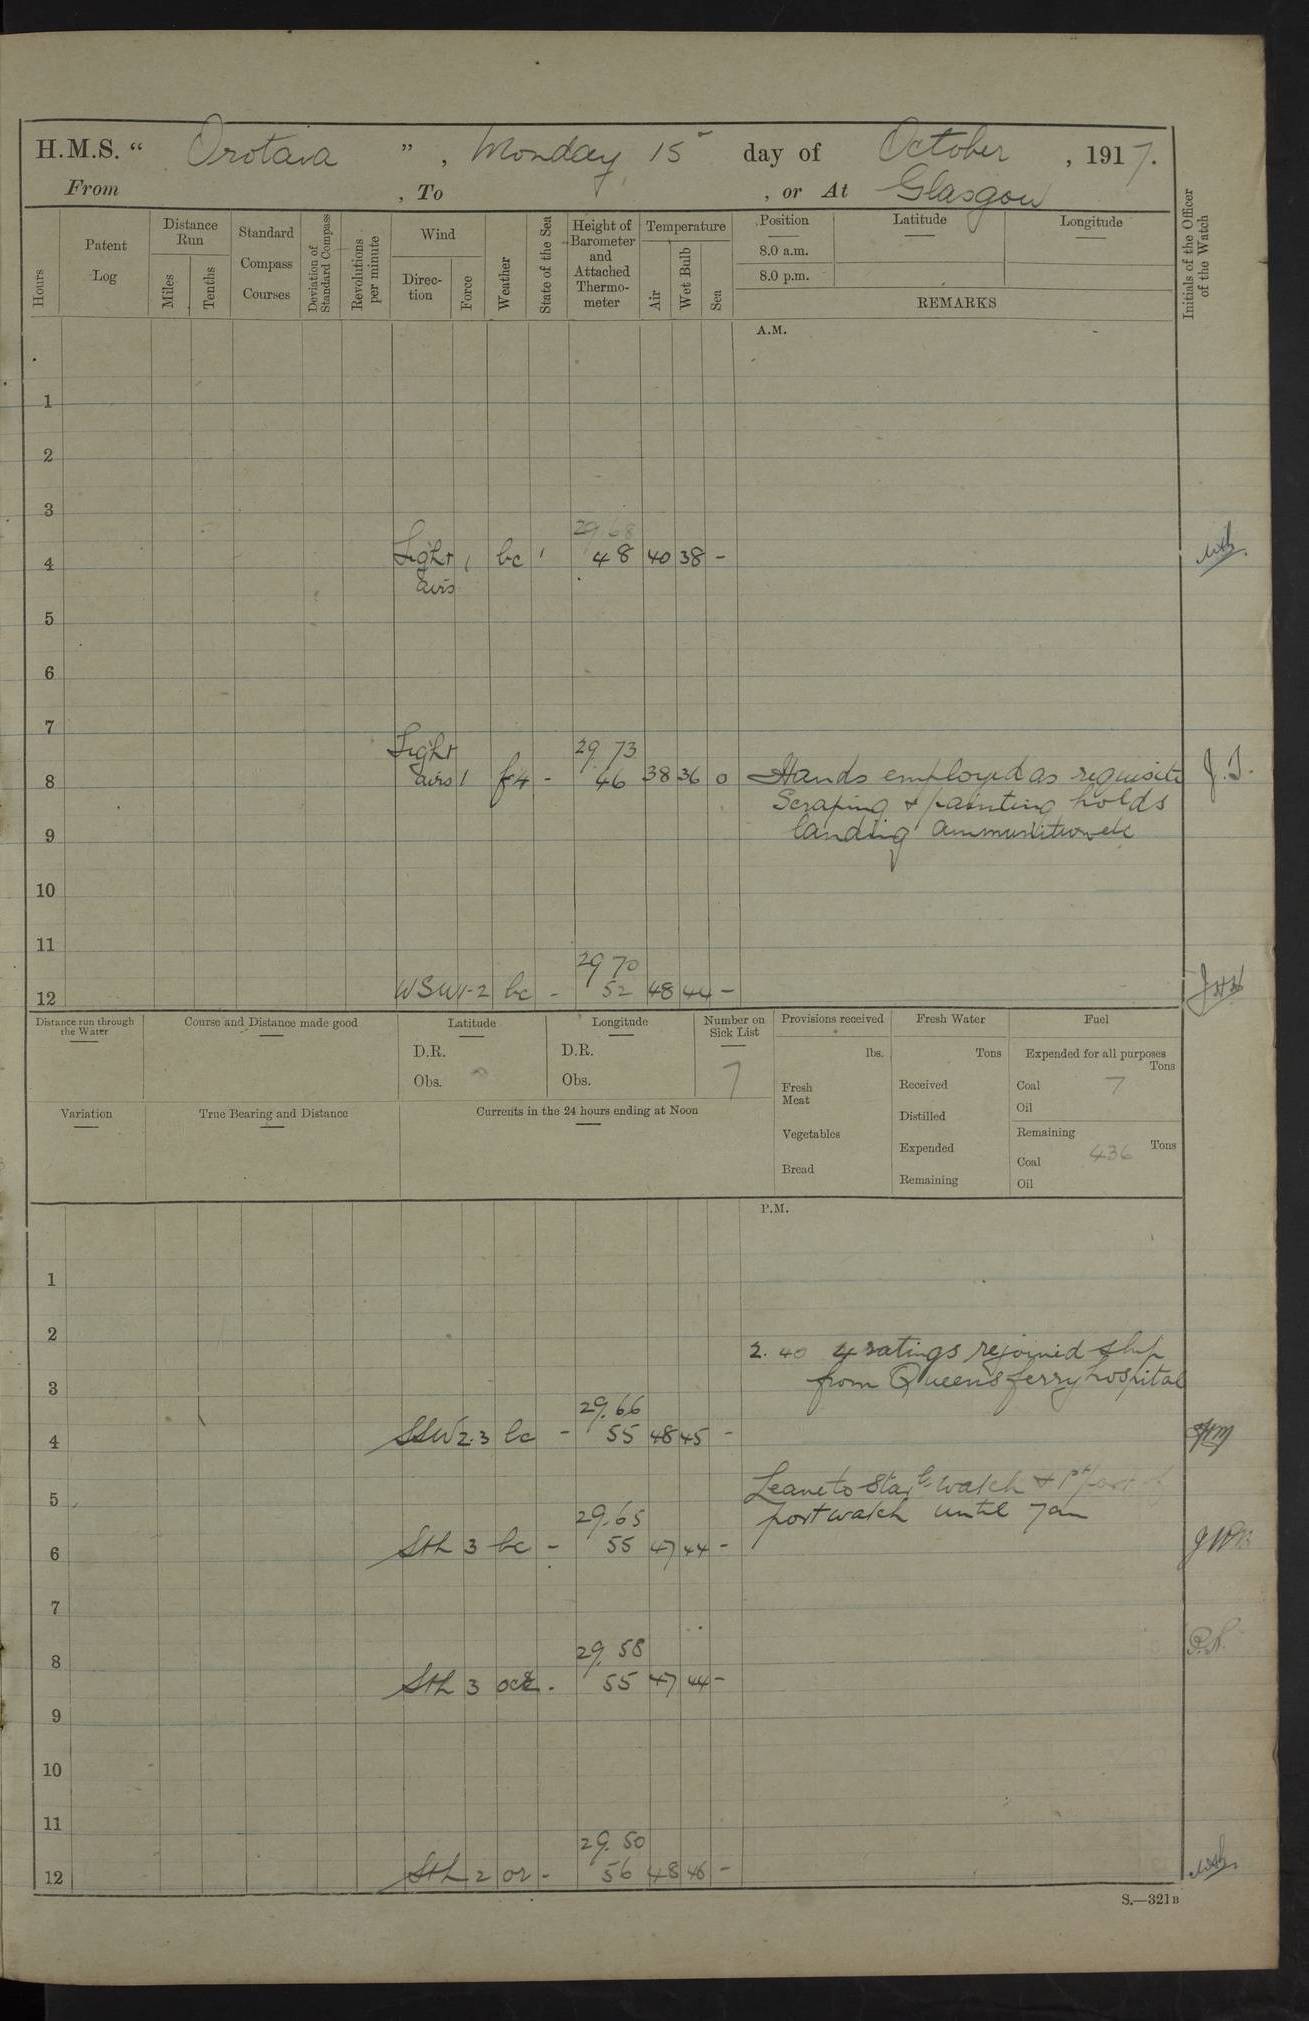 H.M.S. “ Orotava ” , Monday 15 day of October , 1917.
From , To , or At Glasgow
Hours
Patent Log
Distance Run
Miles
Tenths
Standard Compass Courses
Deviation of Standard Compass
Revolutions per minute
Wind
Direction
Force
Weather
State of the Sea
Height of Barometer and Attached Thermometer
Temperature
Air
Wet Bulb
Sea
Position
Latitude
Longitude
8.0 a.m.
8.0 p.m.
REMARKS
Initials of the Officer of the Watch
A.M.
1
2
3
29 68
4 Light airs 1 bc 1 48 40 38 -
5
6
7
Light 29 73
8 airs 1 f4 - 46 38 36 0 Hands employed as requisite J.J.
Scraping & painting holds
9 landing ammunition etc
10
11
29 70
12 WSW 1-2 bc - 52 48 44 -
Distance run through the Water
Course and Distance made good
Latitude
D.R.
Obs.
Longitude
D.R.
Obs.
Number on Sick List
7
Provisions received
lbs.
Fresh Meat
Vegetables
Bread
Fresh Water
Tons
Received
Distilled
Expended
Remaining
Fuel
Expended for all purposes
Tons
Coal 7
Oil
Remaining
Tons
Coal 436
Oil
Variation
True Bearing and Distance
Currents in the 24 hours ending at Noon
P.M.
1
2
2.40 4 ratings rejoined ship
3 from Queensferry hospital
29.66
4 SSW 2.3 bc - 55 48 45 -
Leave to Starb watch & 1st part of
5 port watch until 7am
29.65
6 Sth 3 bc - 55 47 44 -
7
29.58
8 Sth 3 - 55 47 44 -
9
10
11
29.50
12 Sth 2 or - 56 48 46 -
S.—321B